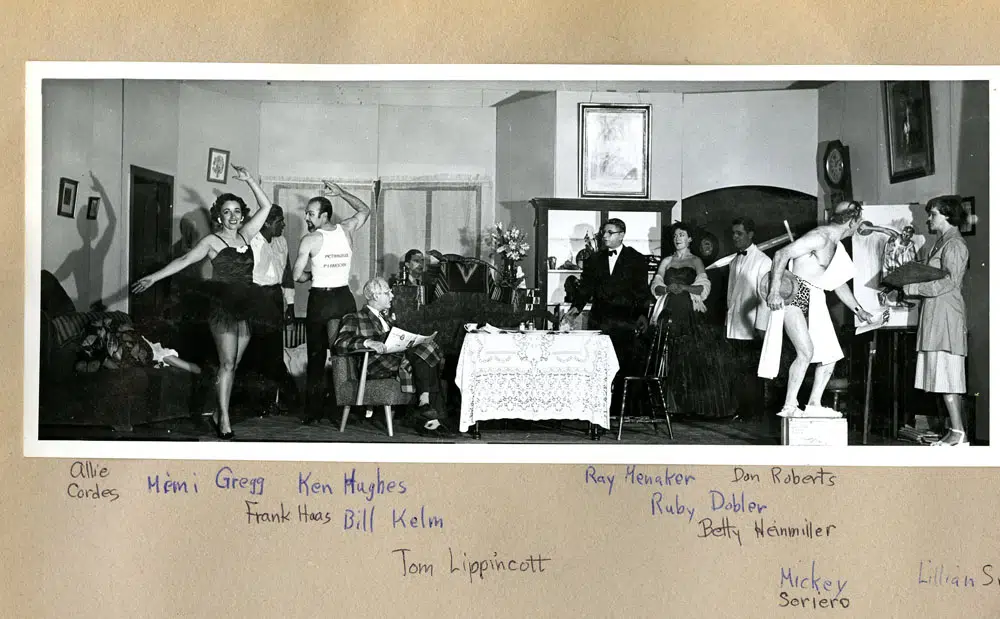 Allie
Cordes
Mimi Gregg
Ken Hughes
Ray Menaker
Don Roberts
Frank Haas
Bill Kelm
Ruby Dobler
Betty Heinmiller
Tom Lippincott
Mickey
Soriero
Lillian